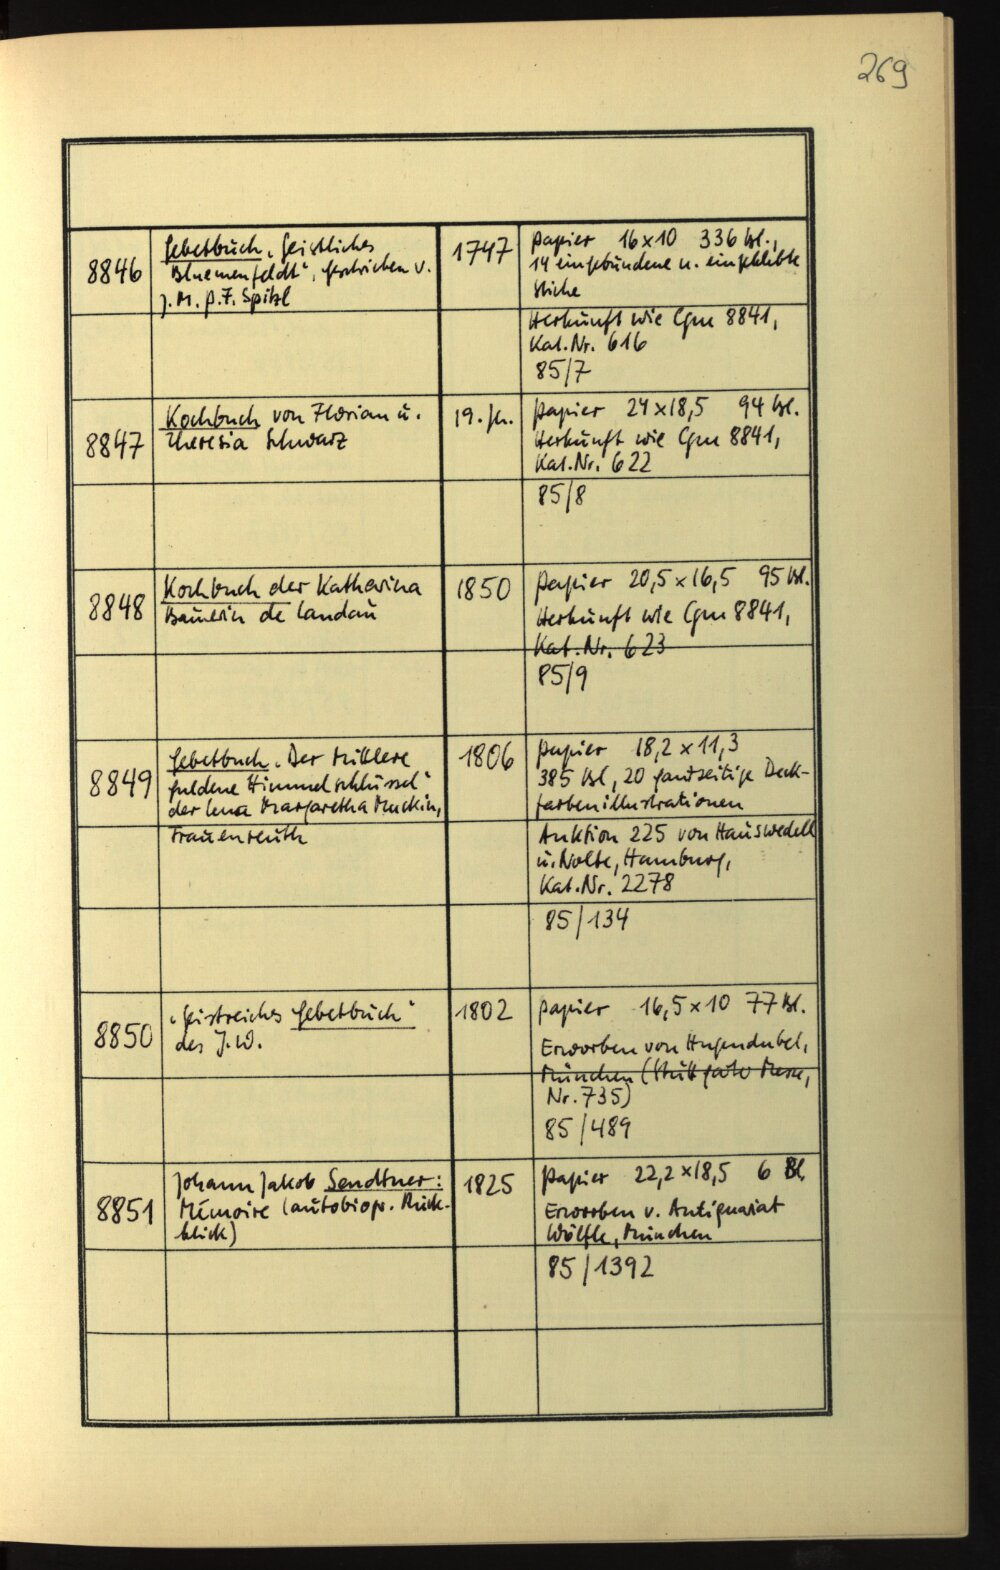 269
8846
Gebetbuch „Geistliches
Bluemenfeldt“, geschrieben v.
J. M. P. F. Spitzl
1747
Papier 16x10 336 Bl.,
14 eingebundene u. eingeklebte
Stiche
Herkunft wie Cgm 8841,
Kat. Nr. 616
85/7
8847
Kochbuch von Florian u.
Theresia Schwarz
19. Jh.
Papier 24x18,5 94 Bl.
Herkunft wie Cgm 8841,
Kat. Nr. 622
85/8
8848
Kochbuch der Katharina
Bäuerin de Landau
1850
Papier 20,5 x 16,5 95 Bl.
Herkunft wie Cgm 8841,
Kat. Nr. 623
85/9
8849
Gebetbuch „Der Mittlere
guldene Himmelschlüssel“
der Margaretha
Frauenreuth
1806
Papier 18,2 x 11,3
385 Bl, 20 ganzseitige Deck-
farbenillustrationen
Auktion 225 von Hauswedell
u. Nolte, Hamburg,
Kat. Nr. 2278
85/134
8850
„Geistreiches Gebetbuch“
des J. W.
1802
Papier 16,5 x 10 77 Bl.
Erworben von Hugendubel,
München (Stuttgarter Messe,
Nr. 735)
85/489
8851
Johann Jakob Sendtner:
Mémoire (autobiogr. Rück-
blick)
1825
Papier 22,2 x 18,5 6 Bl.
Erworben v. Antiquariat
Wölfle, München
85/1392